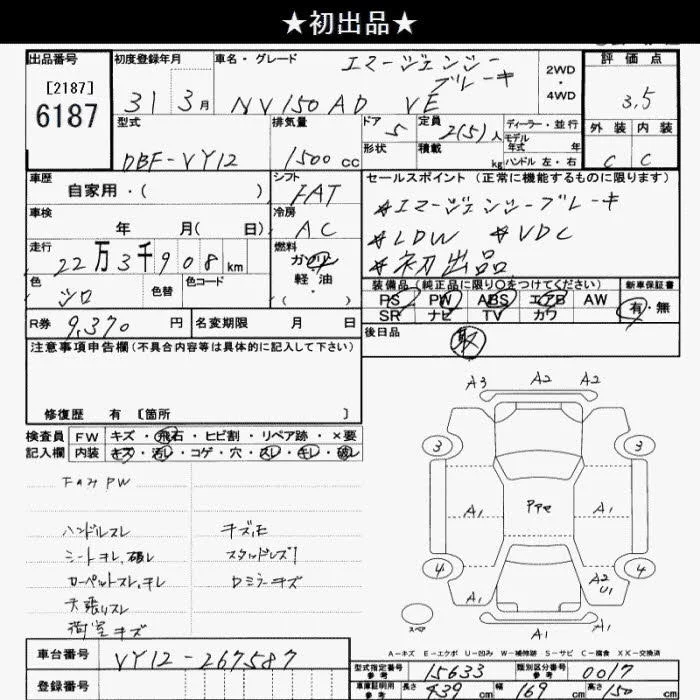 ★初出品★
出品番号 初度登録年月 車名・グレード エマージェンシーブレーキ 2WD・4WD 評価点
[2187]
6187
31 3月 NV150 AD VE 3.5
型式 排気量 ドア 5 定員 2(5)人 ディーラー・並行 外装 内装
モデル年式 年
DBF-VY12 1500cc 形状 積載 kg ハンドル 左・右 C C
車歴 シフト セールスポイント (正常に機能するものに限ります)
自家用・( ) FAT
*エマージェンシーブレーキ
車検 冷房
年 月( 日) AC *LDW *VDC
走行 燃料
22万3千908km ガソリン *初出品
軽油
色 色替 色コード ・( ) 装備品(純正品に限り○をつけてください) 新車保証書
シロ PS PW ABS エアB AW 有・無
SR ナビ TV カワ
R券 9,370円 名変期限 月 日 後日品
取
注意事項申告欄(不具合内容等は具体的に記入して下さい)
修復歴 有 [箇所 ]
A3 A2 A2
検査員 FW キズ・飛石・ヒビ割・リペア跡・×要
記入欄 内装 キズ・汚レ・コゲ・穴・スレ・キレ・破レ
3 3
ハンドルスレ キズ,モ
A1 A1
シートヨレ,破レ スタッドレス
カーペットスレ,キレ ロミラーキズ
4 4
天張リスレ
A1 A2 U1
荷室キズ
スペア A1 A1
A-キズ E-エクボ U-凹み W-補修跡 S-サビ C-腐食 XX-交換済
車台番号 VY12-267587
型式指定番号 参考 15633 類別区分番号 参考 0017
登録番号
車庫証明用 参考 長さ 439cm 幅 169cm 高さ 150cm